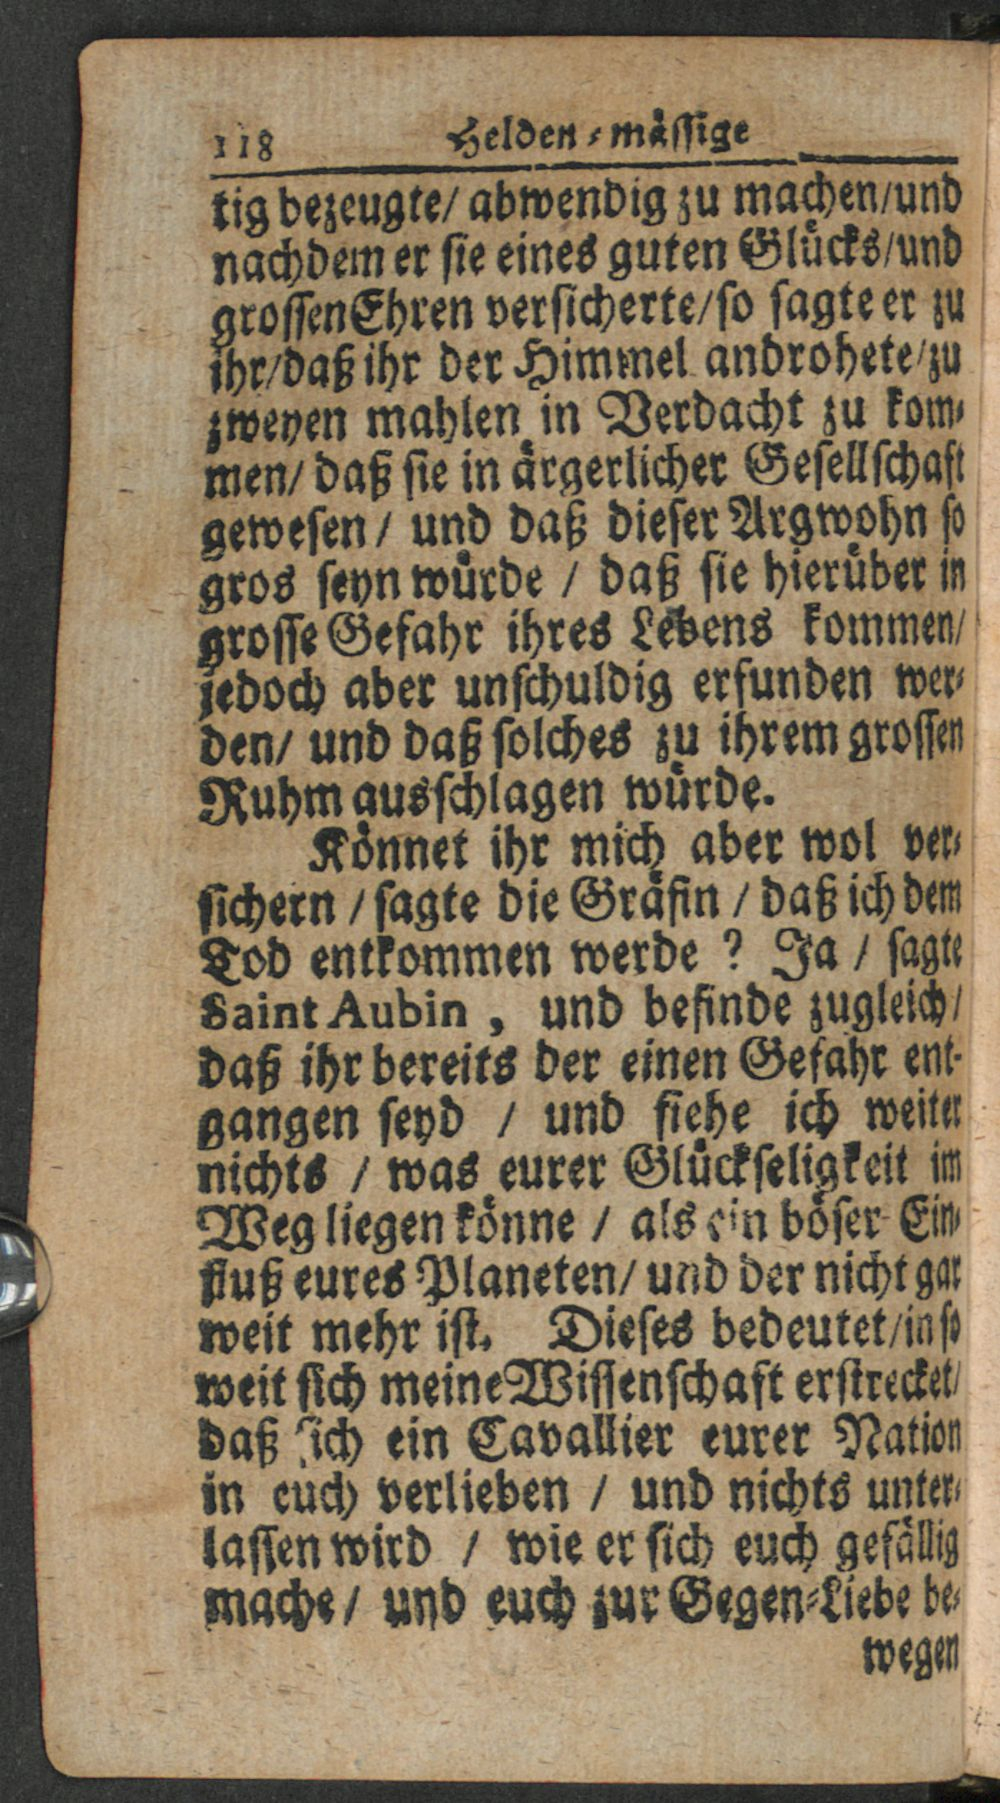 118 Helden-mässige
tig bezeugte/ abwendig zu machen/und
nachdem er sie eines guten Glücks/und
grossen Ehren versicherte/so sagte er zu
ihr/daß ihr der Himmel androhete/zu
zweyen mahlen in Verdacht zu kom-
men/ daß sie in ärgerlicher Gesellschaft
gewesen / und daß dieser Argwohn so
gros seyn würde / daß sie hierüber in
grosse Gefahr ihres Lebens kommen/
jedoch aber unschuldig erfunden wer-
den/ und daß solches zu ihrem grossen
Ruhm ausschlagen würde.
Könnet ihr mich aber wol ver-
sichern / sagte die Gräfin / daß ich dem
Tod entkommen werde ? Ja / sagte
Saint Aubin, und befinde zugleich/
daß ihr bereits der einen Gefahr ent-
gangen seyd / und siehe ich weiter
nichts / was eurer Glückseligkeit im
Weg liegen könne / als ein böser Ein-
fluß eures Planeten/ und der nicht gar
weit mehr ist. Dieses bedeutet/in so
weit sich meine Wissenschaft erstrecket/
daß sich ein Cavallier eurer Nation
in euch verlieben / und nichts unter-
lassen wird / wie er sich euch gefällig
mache / und euch zur Gegen-Liebe be-
wegen